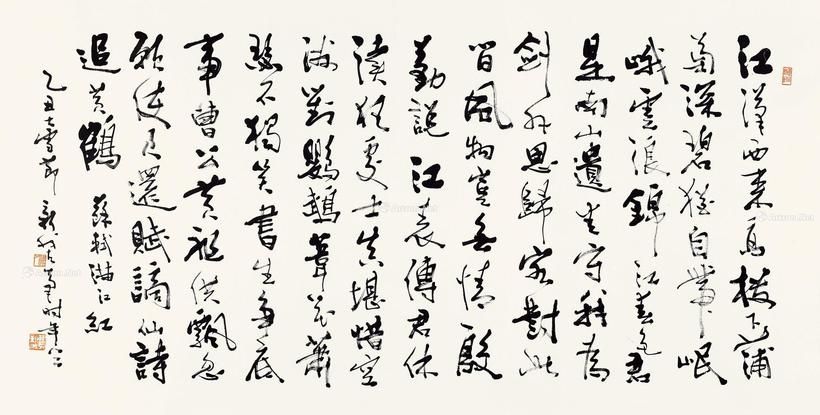 江漢西来高樓下蒲
萄深碧猶自帶岷
峨雪浪錦江春色君
是南山遺愛守我為
劍外思歸客對此
間風物豈無情殷
勤説江表傳君休
讀狂處士真堪惜空
洲對鸚鵡葦花蕭
瑟不獨笑書生爭底
事曹公黄祖俱飄忽
願使君還賦謫仙詩
追黄鶴 蘇軾满江紅
乙丑大雪節 時年